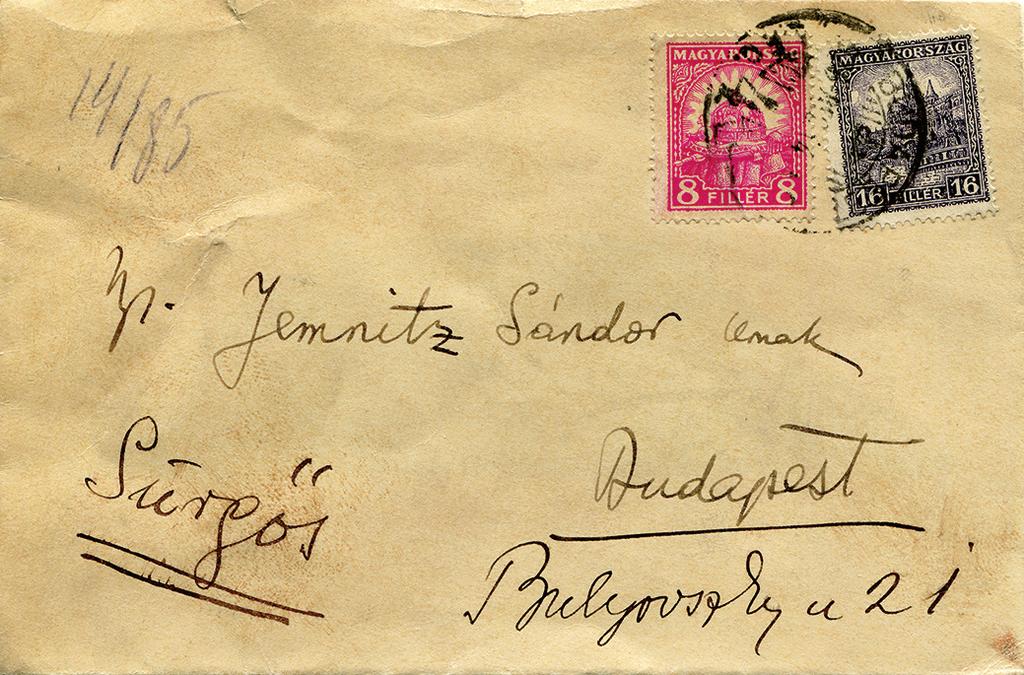 14/85
MAGYARORSZÁG
8 FILLÉR 8
MAGYARORSZÁG
16 FILLÉR 16
Jemnitz Sándor urnak
Sürgős
Budapest
Bulyovszky u 21